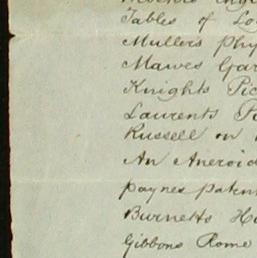 Tables of Lo
Mullers Phy
Mawes Gar
Knights Pic
Laurents P
Russell on
An Aneroid
paynes paten
Burnetts H
Gibbons Rome